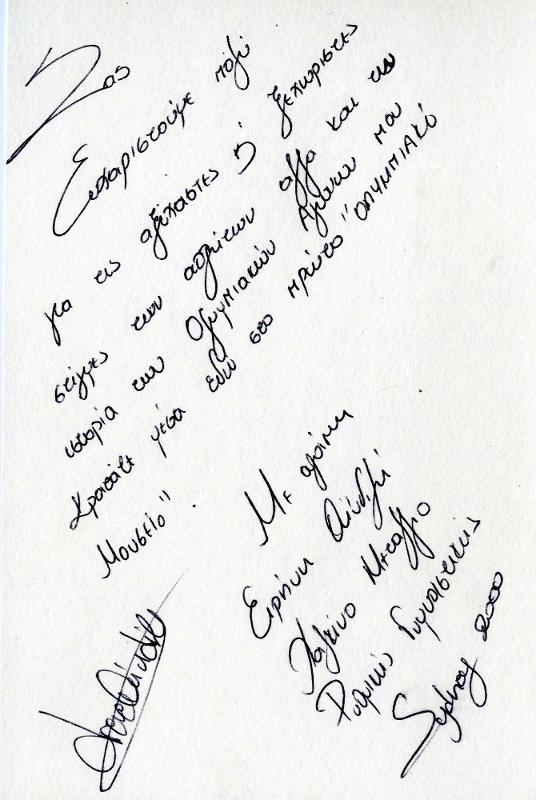 Σας
Ευχαριστούμε πολύ
για τις αξέχαστες & ξεχωριστές
στιγμές των αθλητών αλλα και την
ιστορία των Ολυμπιακών Αγώνων που
κρατάτε μέσα εδώ στο πρώτο "ΟΛΥΜΠΙΑΚΟ
Μουσείο".
Με αγάπη
Ειρήνη Αϊνδιλή
Χάλκινο Μετάλλιο
Ρυθμικής Γυμναστικής
Sydney 2000